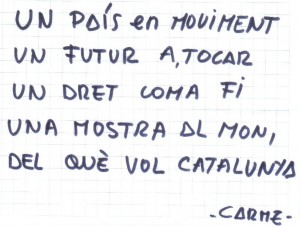 UN PAÍS en MOVIMENT
UN FUTUR A,TOCAR
UN DRET COMA FI
UNA MOSTRA AL MON,
DEL QUÈ VOL CATALUNYA
-CARME-